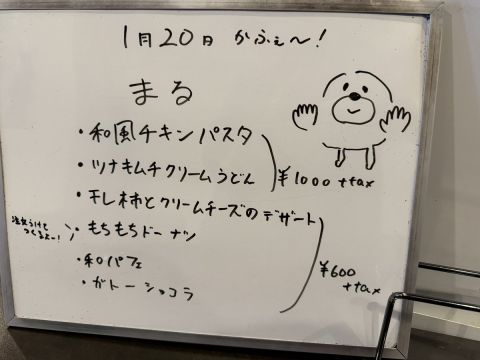 1月20日 かふぇ〜!
まる
・和風チキンパスタ
・ツナキムチクリームうどん
¥1000 +tax
・干し柿とクリームチーズのデザート
注文うけてつくるよー!
・もちもちドーナツ
・和パフェ
・ガトーショコラ
¥600 +tax